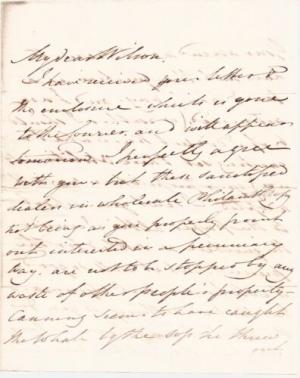 My dear Wilson.
I have received your letter &
the enclosure which is gone
to the Courier, and will appear
tomorrow. I perfectly agree
with you, but these sanctified
dealers in wholesale Philanthropy
not being as you properly point
out interested in a pecuniary
way. are not to be stopped by any
waste of other people's property.
Canning seems to have caught
the Whale by the sop he threw
out